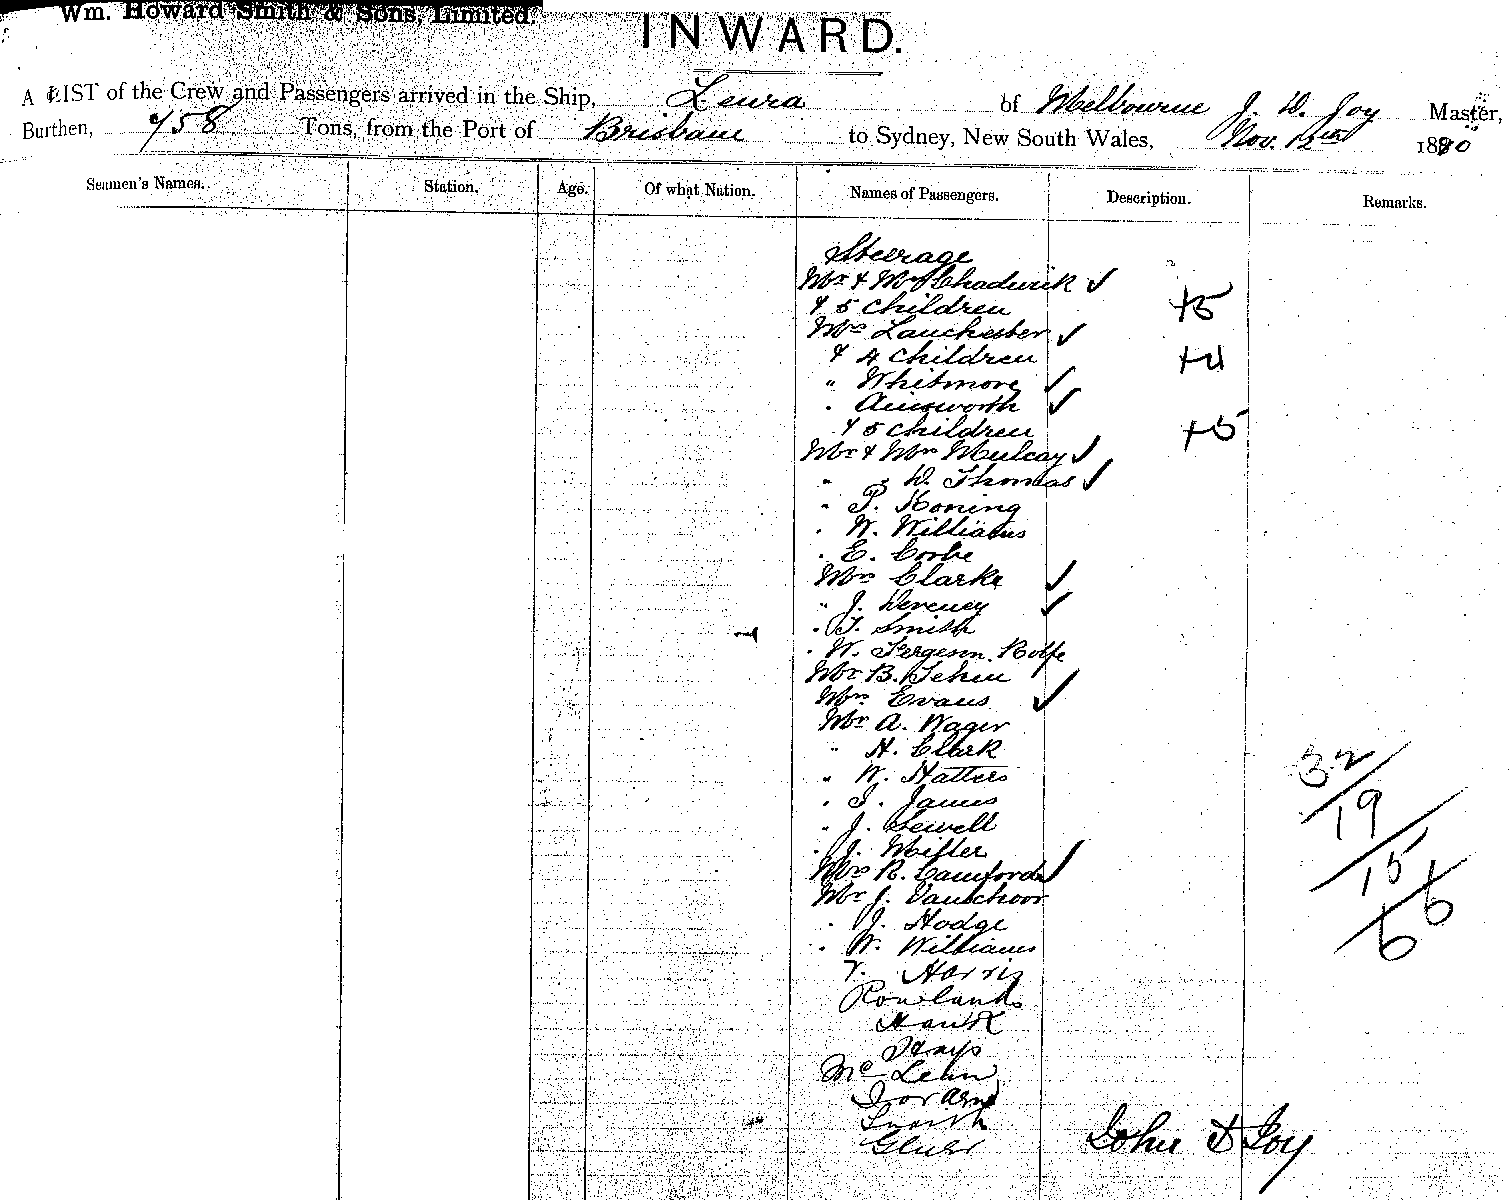 Wm. Howard Smith & Sons, Limited.
INWARD.
A LIST of the Crew and Passengers arrived in the Ship, Leura of Melbourne J. D. Joy Master,
Burthen, 758 Tons, from the Port of Brisbane to Sydney, New South Wales, Nov. 12th 1890
Seamen's Names. Station. Age. Of what Nation. Names of Passengers. Description. Remarks.
Steerage
Mr & Mrs Chadwick ✓
& 5 children +5
Mrs Lanchester ✓
& 4 children +4
" Whitmore ✓
" Ainsworth ✓
& 5 children +5
Mr & Mrs Mulcay ✓
" " D. Thomas ✓
" P. Koning
" W. Williams
" E. Corbe
Mrs Clarke ✓
" J. Deveney ✓
" T. Smith
" W. Fergeson Rolfe
Mr B. Tehin
Mrs Evans ✓
Mr A. Wager
" H. Clark
" W. Hatters
" T. James
" J. Sewell
" J. Miller
Mrs R. Camford ✓
Mr J. Vanschoor
" J. Hodge
" W. Williams
V. Harris
Rowlands
Hawk
Hays
McLean
32
19
15
6
6
John D Joy